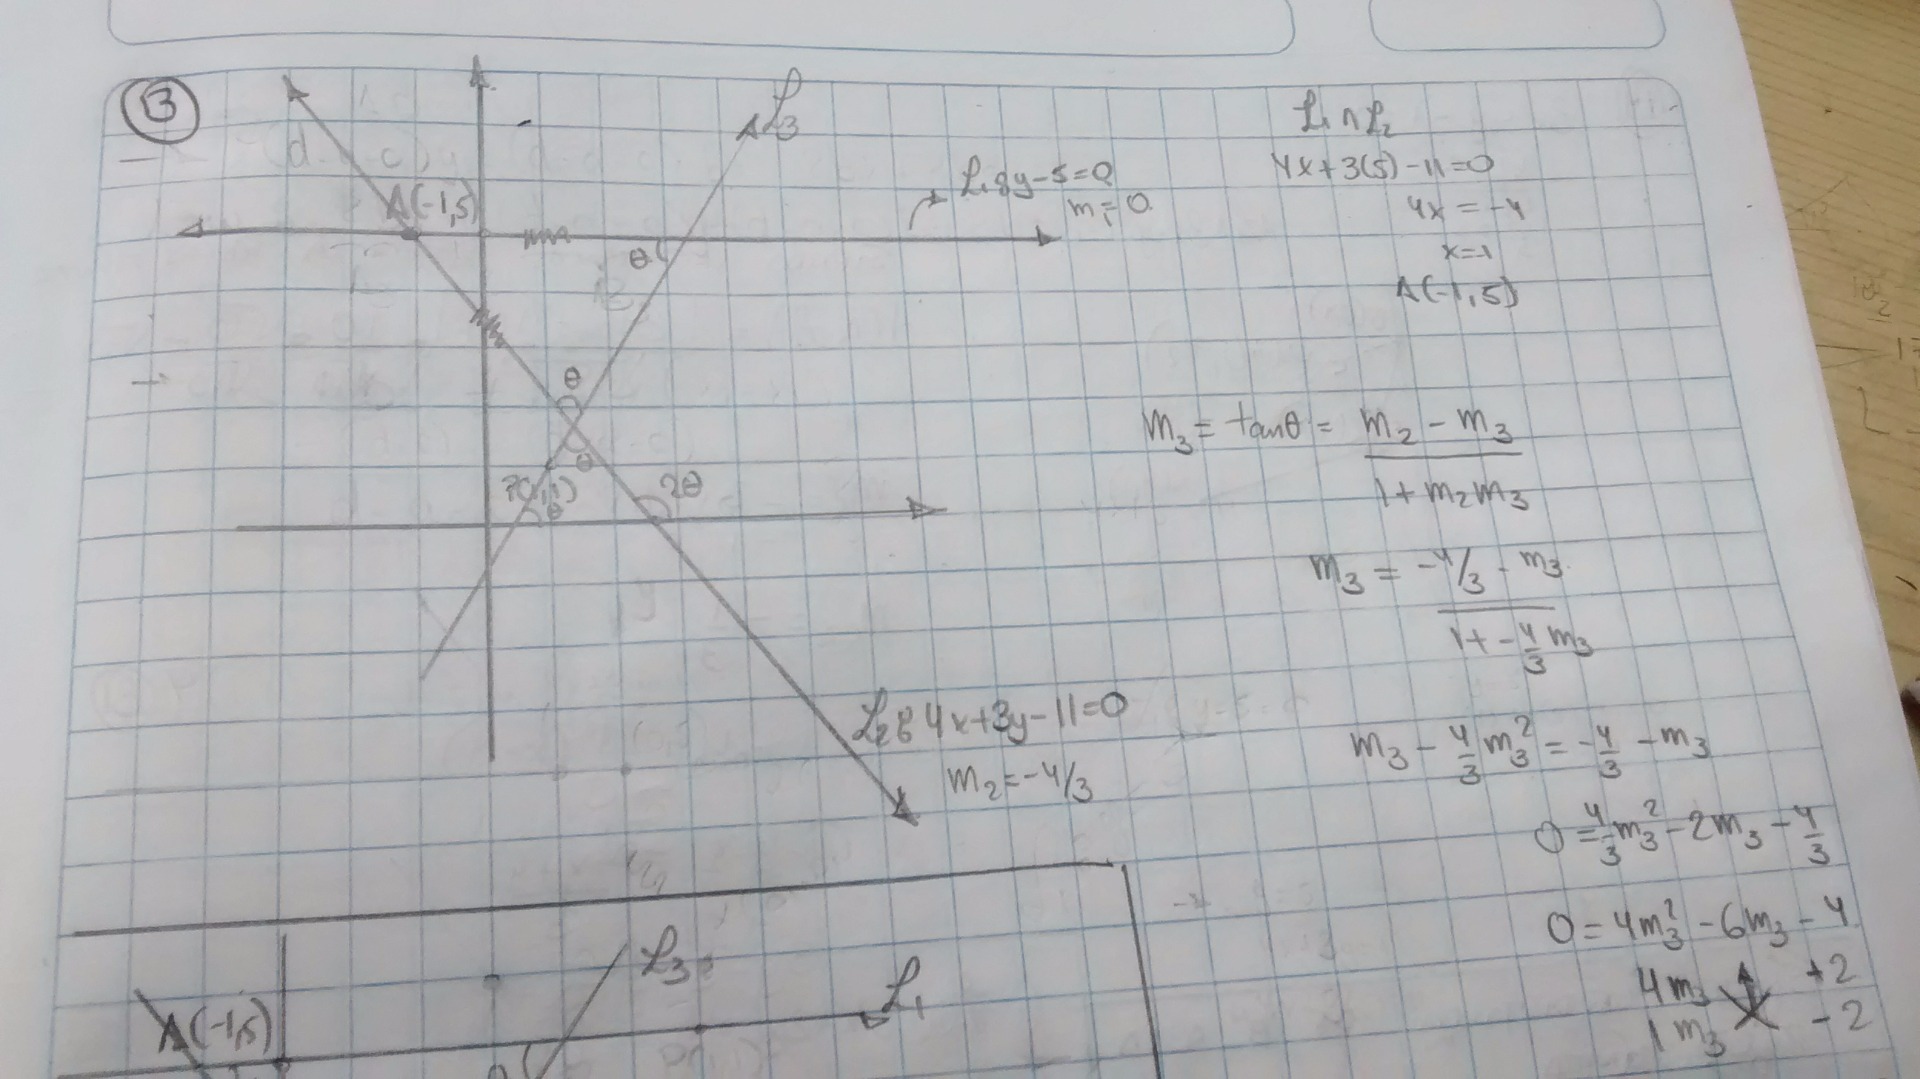 13
L3
A(-1,5)
L1: y-5=0
m1=0
θ
θ
θ
P(1,1)
θ
2θ
L2: 4x+3y-11=0
m2=-4/3
L1 ∩ L2
4x+3(5)-11=0
4x = -4
x=-1
A(-1,5)
m3 = tanθ = (m2 - m3)/(1+m2m3)
m3 = (-4/3 - m3)/(1+ -4/3 m3)
m3 - 4/3 m3² = -4/3 - m3
0 = 4/3 m3² - 2m3 - 4/3
0 = 4m3² - 6m3 - 4
4m3 +2
1m3 -2
L3
L1
A(-1,5)